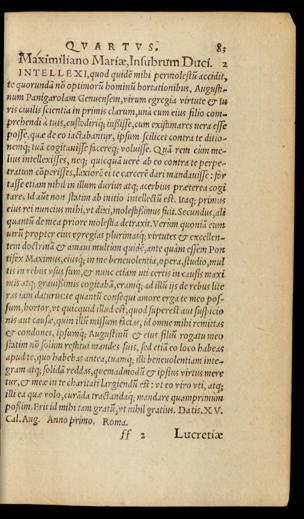 QVARTVS. 83
Maximiliano Mariæ, Insubrum Duci. 2
INTELLEXI, quod quidẽ mihi permolestũ accidit,
te quorundã nõ optimorũ hominũ hortationibus, Augusti-
num Panigarolam Genuensem, virum egregia virtute & iu
ris ciuilis scientia in primis clarum, vna cum eius filio com-
prehendi à tuis, custodiriq; iussisse, cum existimares vera esse
posse, quæ de eo iactabantur, ipsum scilicet contra te ditio
nemq; tuã cogitauisse facereq; voluisse. Quã rem cum me-
lius intellexisses, neq; quicquã vere ab eo contra te perpe-
tratum cõperisses, laxiorẽ ei te carcerẽ dari mandauisse: for
tasse etiam nihil in illum durius atq; acerbius præterea cogi
tare. Id aũt non statim ab initio intellectũ est. Itaq; primus
eius rei nuncius mihi, vt dixi, molestissimus fuit. Secundus, ali
quantũ de mea priore molestia detraxit. Verùm quoniã eum
virũ propter eius egregias plurimasq; virtutes & excellen-
tem doctrinã & amaui multùm quidẽ, ante quàm essem Pon
tifex Maximus, eiusq; in me beneuolentia, opera, studio, mul
tis in rebus vsus sum, & nunc etiam uti certis in caussis maxi
mis atq; grauissimis cogitabã, eramq; ad illũ ijs de rebus lite
ras iam daturus: te quantũ consequi amore erga te meo pos-
sum, hortor, vt quicquid illud est, quod superest aut suspicio
nis aut causæ, quin illũ missum facias, id omne mihi remittas
& condones, ipsumq; Augustinũ & eius filiũ rogatu meo
statim nõ solùm restitui mandes suis, sed etiã eo loco habeas
apud te, quo habebas antea, tuamq; illi beneuolentiam inte-
gram atq; solidã reddas, quemadmodũ & ipsius virtus mere
tur, & mea in te charitati largiendũ est: vt eo viro vti, atq;
illi ea quæ volo, curãda tractandaq; mandare quamprimum
possim. Erit id mihi tam gratũ, vt nihil gratius. Datis. XV.
Cal. Aug. Anno primo. Roma.
ff 2 Lucretiæ